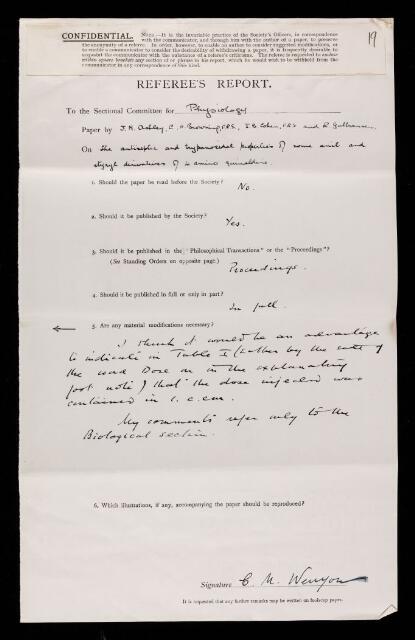 19
CONFIDENTIAL. NOTE.—It is the invariable practice of the Society's Officers, in correspondence
with the communicator, and through him with the author of a paper, to preserve
the anonymity of a referee. In order, however, to enable an author to consider suggested modifications, or
to enable a communicator to consider the desirability of withdrawing a paper, it is frequently desirable to
acquaint the communicator with the substance of a referee's criticisms. The referee is requested to enclose
within square brackets any section of or phrase in his report, which he would wish to be withheld from the
communicator in any correspondence of this kind.
REFEREE'S REPORT.
To the Sectional Committee for Physiology
Paper by J. N. Ashley, C. H. Browning, F.R.S., J. B. Cohen, F.R.S and R Gulbransen
On The antiseptic and trypanocidal properties of some anil and
styryl derivatives of 4 amino quinoline.
1. Should the paper be read before the Society? No.
2. Should it be published by the Society? Yes.
3. Should it be published in the "Philosophical Transactions" or the "Proceedings"?
(See Standing Orders on opposite page.) Proceedings.
4. Should it be published in full or only in part? In full.
5. Are any material modifications necessary?
I think it would be an advantage
to indicate in Table I (either by the side of
the word Dose or in the explanatory
foot note) that the dose injected was
contained in 1. c.cm.
My comments refer only to the
Biological section.
6. Which illustrations, if any, accompanying the paper should be reproduced?
Signature C. M. Wenyon
It is requested that any further remarks may be written on foolscap paper.